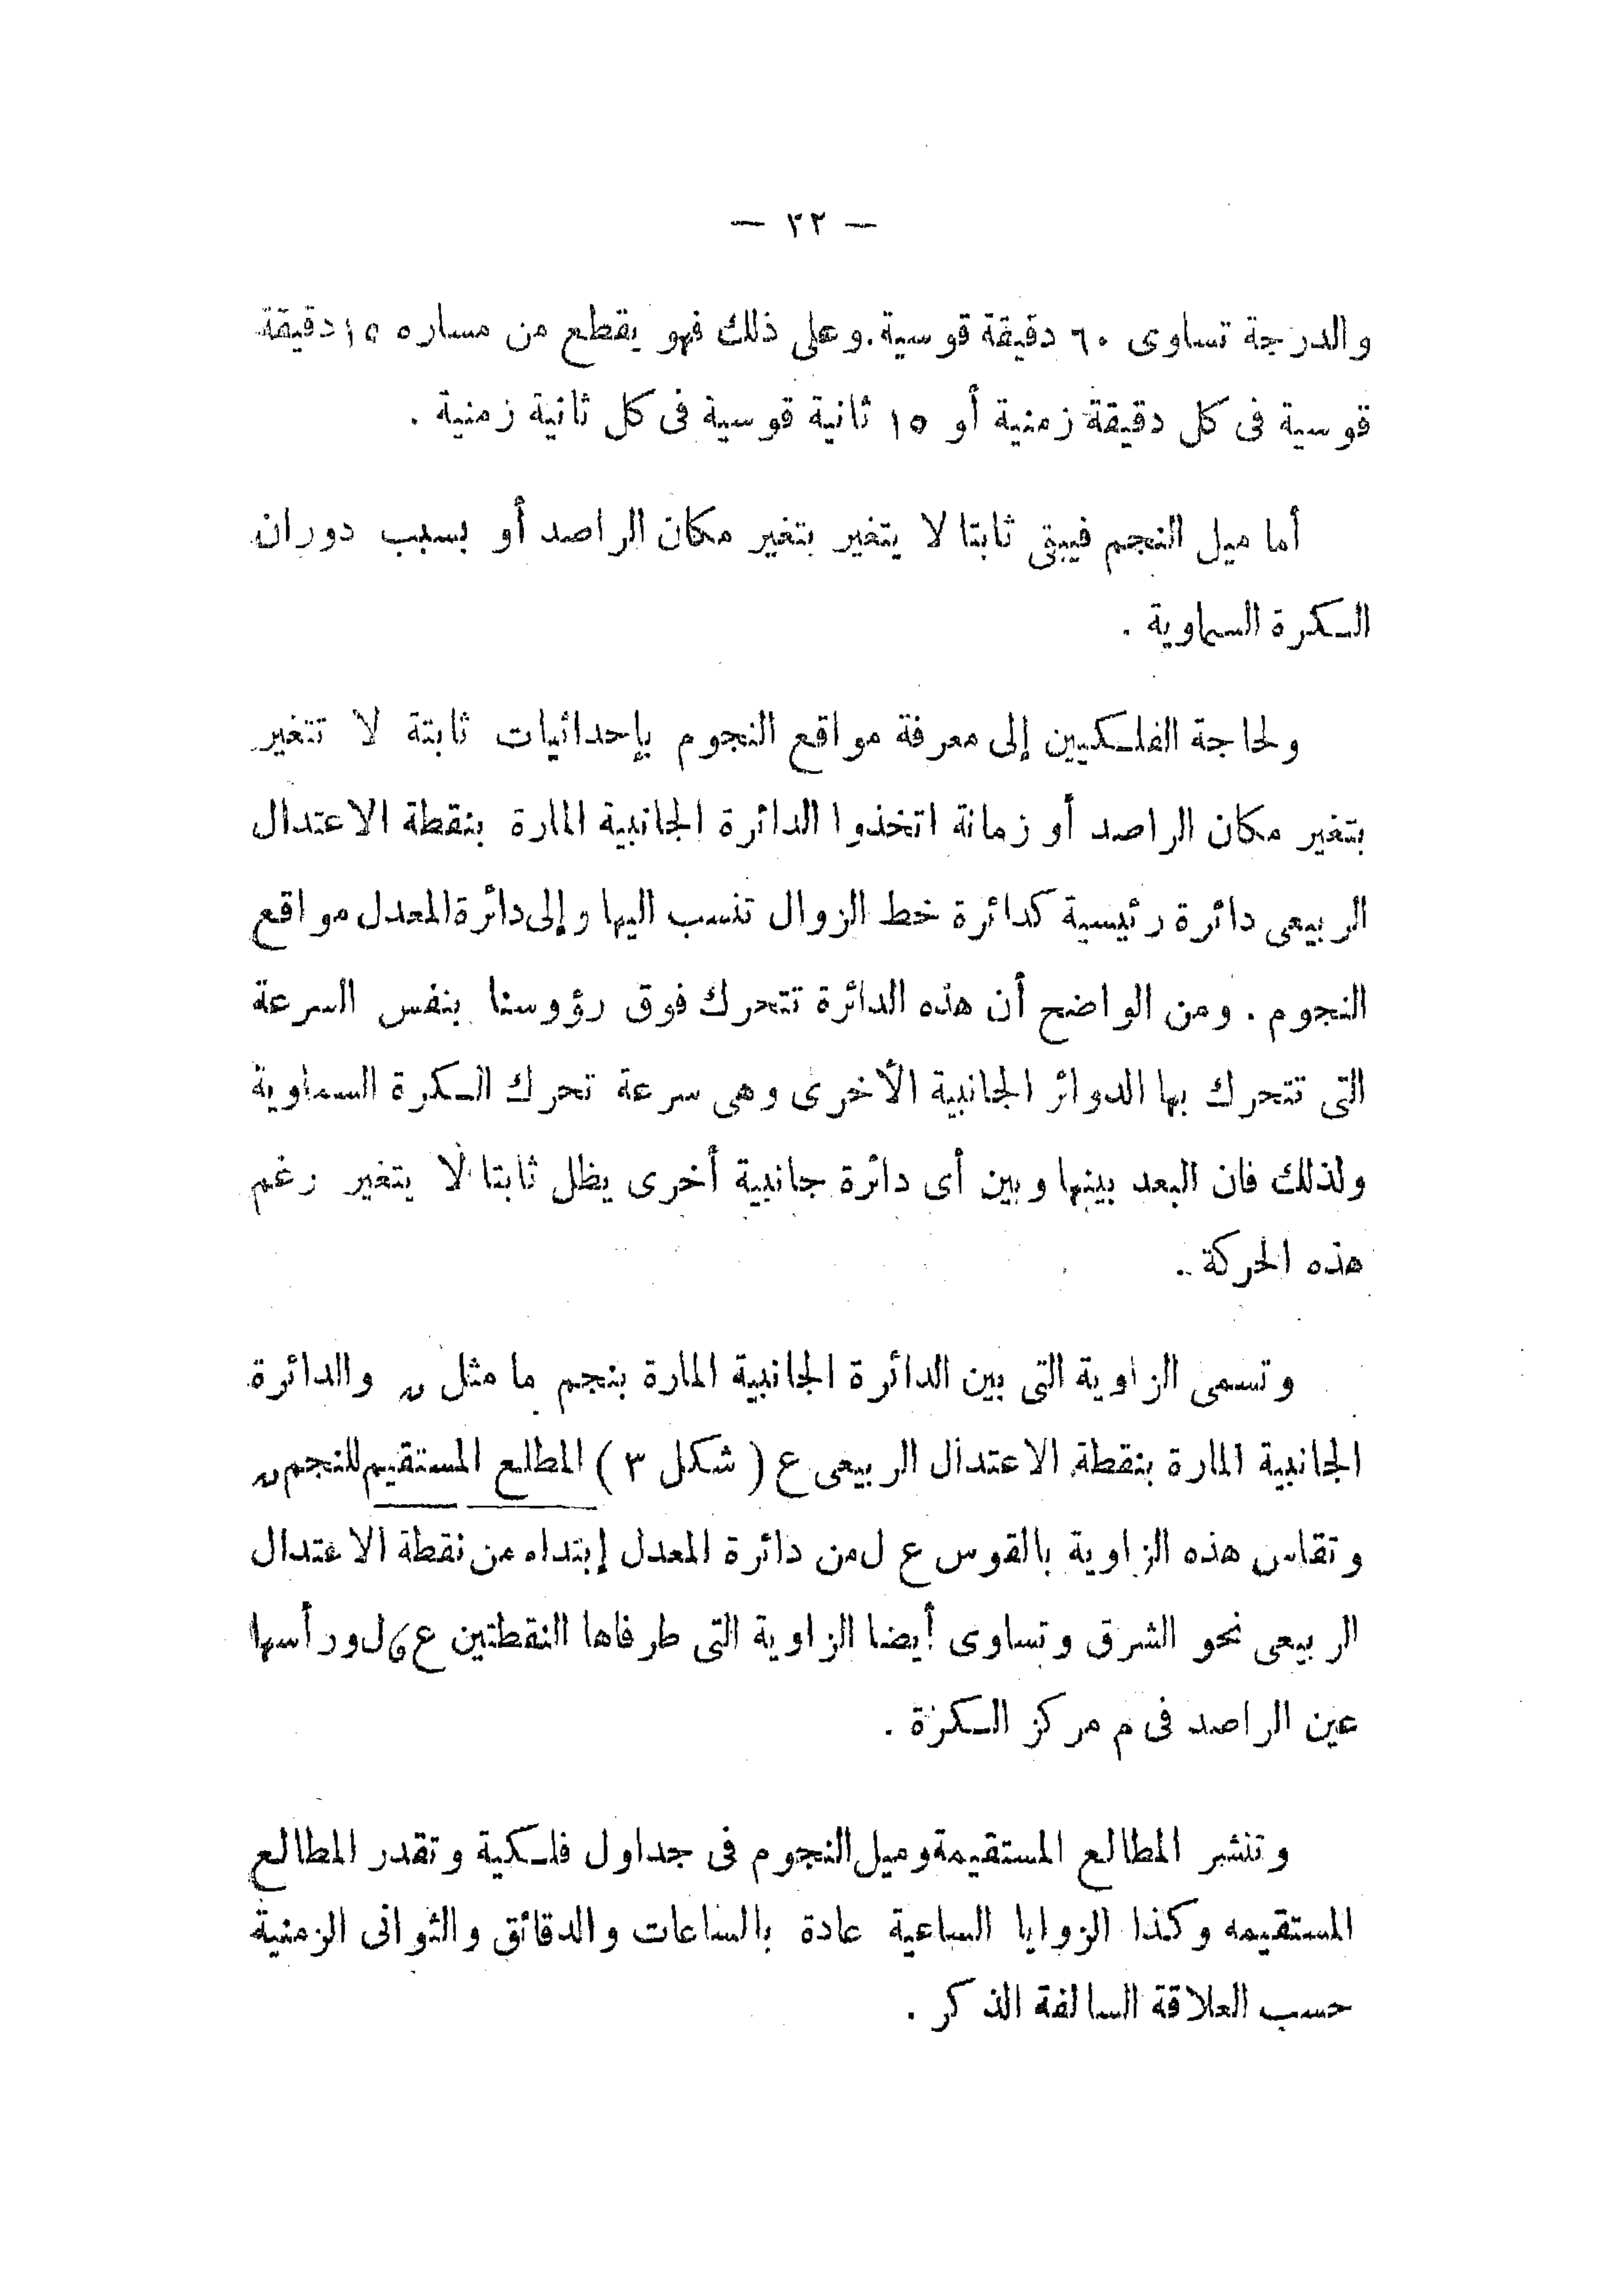 — ٢٢ —
والدرجة تساوى ٦٠ دقيقة قوسية. وعلى ذلك فهو يقطع من مساره ١٥ دقيقة
قوسية فى كل دقيقة زمنية أو ١٥ ثانية قوسية فى كل ثانية زمنية .
أما ميل النجم فيبقى ثابتا لا يتغير بتغير مكان الراصد أو بسبب دوران
الكرة السماوية .
ولحاجة الفلكيين إلى معرفة مواقع النجوم بإحداثيات ثابتة لا تتغير
بتغير مكان الراصد أو زمانة اتخذوا الدائرة الجانبية المارة بنقطة الاعتدال
الربيعى دائرة رئيسية كدائرة خط الزوال تنسب اليها وإلى دائرة المعدل مواقع
النجوم . ومن الواضح أن هذه الدائرة تتحرك فوق رؤوسنا بنفس السرعة
التى تتحرك بها الدوائر الجانبية الأخرى وهى سرعة تحرك الكرة السماوية
ولذلك فان البعد بينها وبين أى دائرة جانبية أخرى يظل ثابتا لا يتغير رغم
هذه الحركة .
وتسمى الزاوية التى بين الدائرة الجانبية المارة بنجم ما مثل ن والدائرة
الجانبية المارة بنقطة الاعتدال الربيعى ع ( شكل ٣ ) المطلع المستقيم للنجم ن
وتقاس هذه الزاوية بالقوس ع ل من دائرة المعدل إبتداء من نقطة الاعتدال
الربيعى نحو الشرق وتساوى أيضا الزاوية التى طرفاها النقطتين ع ، ل ورأسها
عين الراصد فى م مركز الكرة .
وتنشر المطالع المستقيمة وميل النجوم فى جداول فلكية وتقدر المطالع
المستقيمه وكذا الزوايا الساعية عادة بالساعات والدقائق والثوانى الزمنية
حسب العلاقة السالفة الذكر .